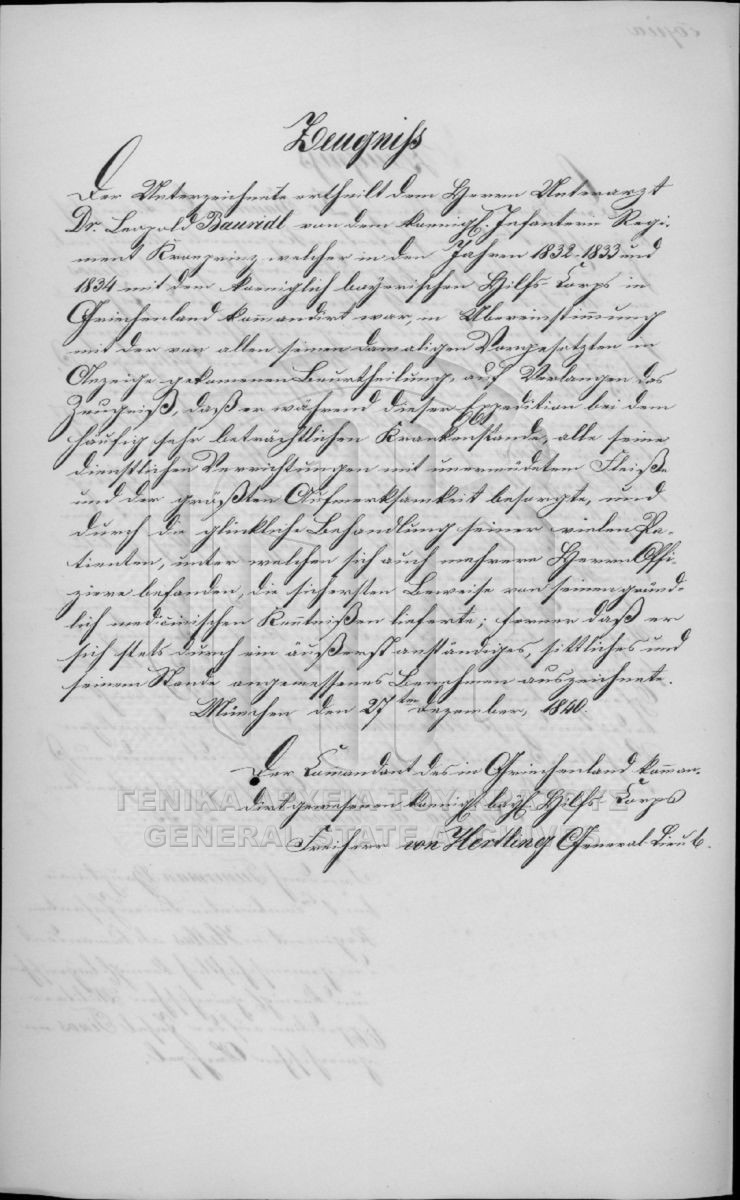 copia
Zeugniß
Der Unterzeichnete ertheilt dem Herrn Unterarzt
Dr. Leopold Bauridl von dem koenigl. Infanterie Regi-
ment Kronprinz, welcher in den Jahren 1832. 1833 und
1834 mit dem koeniglich bayerischen Hilfs-Corps in
Griechenland kom̄andirt war, in Ubereinstim̄ung
mit der von allen seinen damaligen Vorgesetzten in
Anzeige gekom̄enen Beurtheilung, auf Verlangen das
Zeugniß, daß er während dieser Expedition bei dem
häufig sehr beträchtlichen Krankenstande, alle seine
dienstlichen Verrichtungen mit unermüdetem Fleiße
und der größten Aufmerksamkeit besorgte, und
durch die glückliche Behandlung seiner vielen Pa-
tienten, unter welchen sich auch mehrere Herrn Offi-
ziere befanden, die sichersten Beweise von seinen gründ-
lich medicinischen Kentnißen lieferte; ferner daß er
sich stets durch ein äußerst anständiges, sittliches und
seinem Stande angemessenes Benehmen auszeichnete.
München den 27ten Dezember, 1840.
Der Commandant des in Griechenland kom̄an-
dirt gewesenen koenigl. bayr. Hilfs-Corps
Freiherr von Hertling General-Lieut.
ΓΕΝΙΚΑ ΑΡΧΕΙΑ ΤΟΥ ΚΡΑΤΟΥΣ
GENERAL STATE ARCHIVES